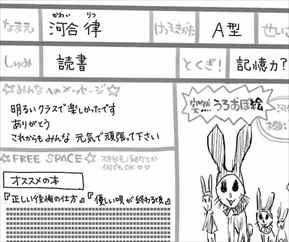 なまえ 河合 律 かわい りつ けつえきがた A型 せいざ
しゅみ 読書 とくぎ! 記憶力?
☆みんなへのメッセージ☆
明るいクラスで楽しかったです
ありがとう
これからもみんな 元気で頑張って下さい
うろおぼ絵
☆FREE SPACE☆
オススメの本
『正しい後悔の仕方』『優しい唄が終わる頃』